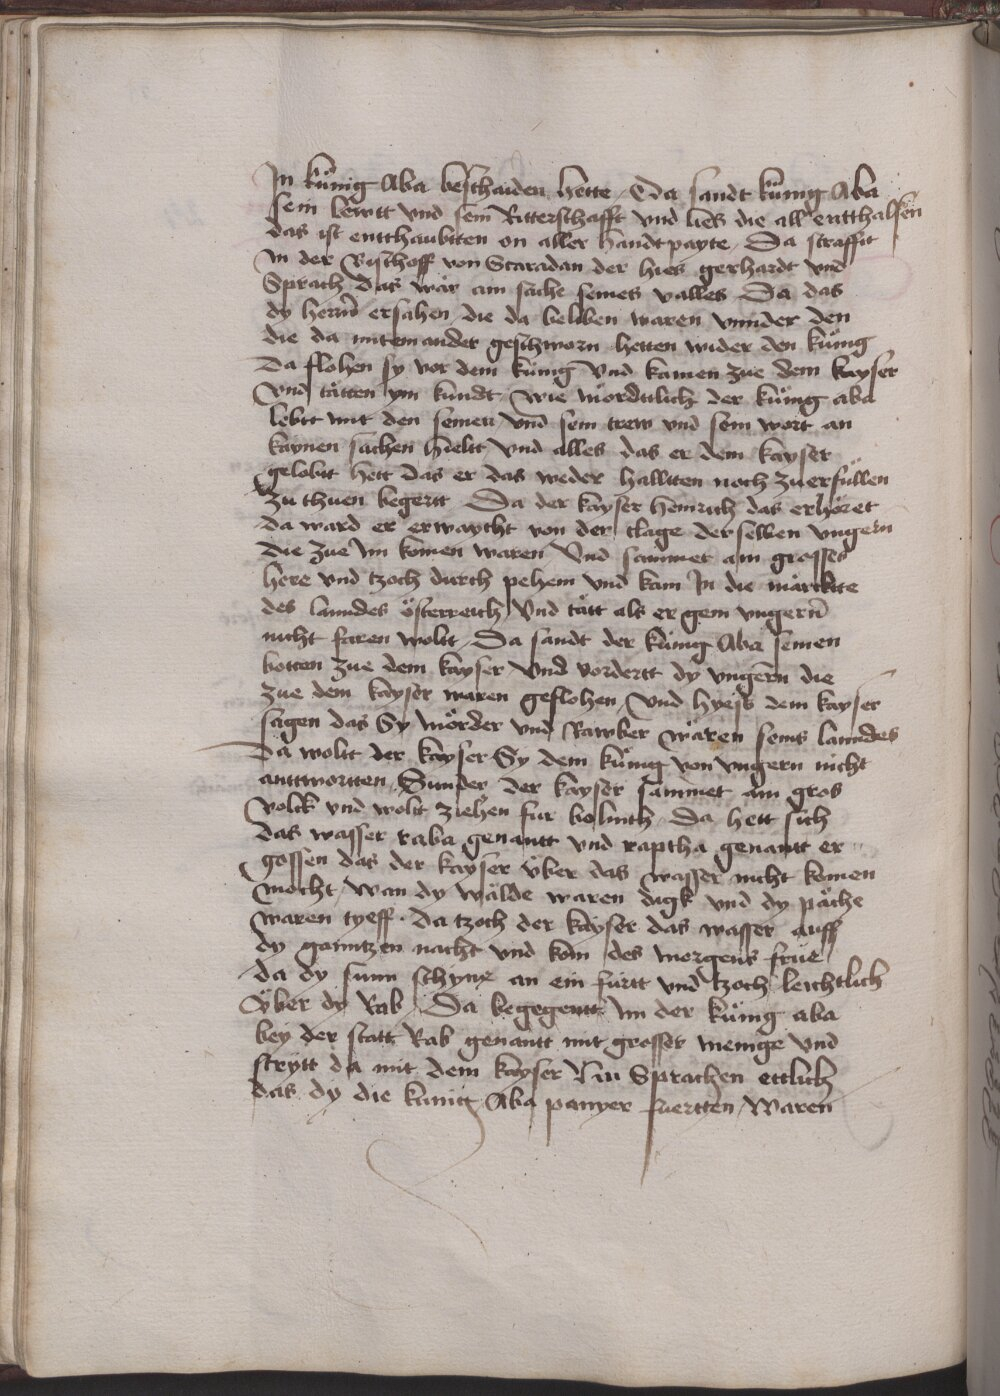 In kunig Aba beschaiden hette / Da sandt kunig Aba
sein lewtt vnd sein Ritterschafft vnd lies die all entthalsen
das ist entthaubtten on aller handt payte / Da straffit
in der Bischoff von Scaradan der hies gerhardt vnd
Sprach das wär ain sache seines valles Da das
dy herrn ersahen die da beliben waren vnnder den
die da miteinander geschworn hetten wider den kunig
Da flohen sy vor dem kunig vnd kamen zue dem kayser
vnd tätten ym kundt wie mördtlich der kunig aba
lebtt mit den seinen vnd sein trew vnd sein wort an
kaynen sachen hieltt vnd alles das er dem kayser
gelobtt hett das er das weder halltten noch zuerfüllen
zu thuen begertt Da der kayser heinrich das erhöret
da ward er erwaycht von der clage derselben vngern
die zue Im komen waren vnd sammet ain grosses
here vnd tzoch durch pehem vnd kam In die märckte
des lanndes österreich vnd tätt als er gein vngern
nicht faren woltt / Da sandt der kunig Aba seinen
botten zue dem kayser vnd vordertt dy vngern die
zue dem kayser waren geflohen / vnd hyess dem kayser
sagen das Sy mörder vnd Rawber wären seins lanndes
Da wolt der kayser Sy dem kunig von vngern nicht
anttwortten Sunder der kayser sammet ain gros
volck vnd wolt ziehen fur bolinth / Da hett sich
das wasser raba genantt vnd raptha genantt er
gossen das der kayser über das wasser nicht komen
mocht / wan dy wälde waren digk vnd dy päche
waren tyeff . da tzoch der kayser das wasser auff
dy ganntzen nacht vnd kom des morgens frue
da dy sunn schyne an ein furtt vnd tzoch leichtlich
Über dy Rab / Da begegentt im der kunig aba
bey der statt Rab genantt mit grosser menige vnd
strytt da mit dem kayser Nu Sprachen ettlich
das dy die kunig Aba panyer fuertten / Waren